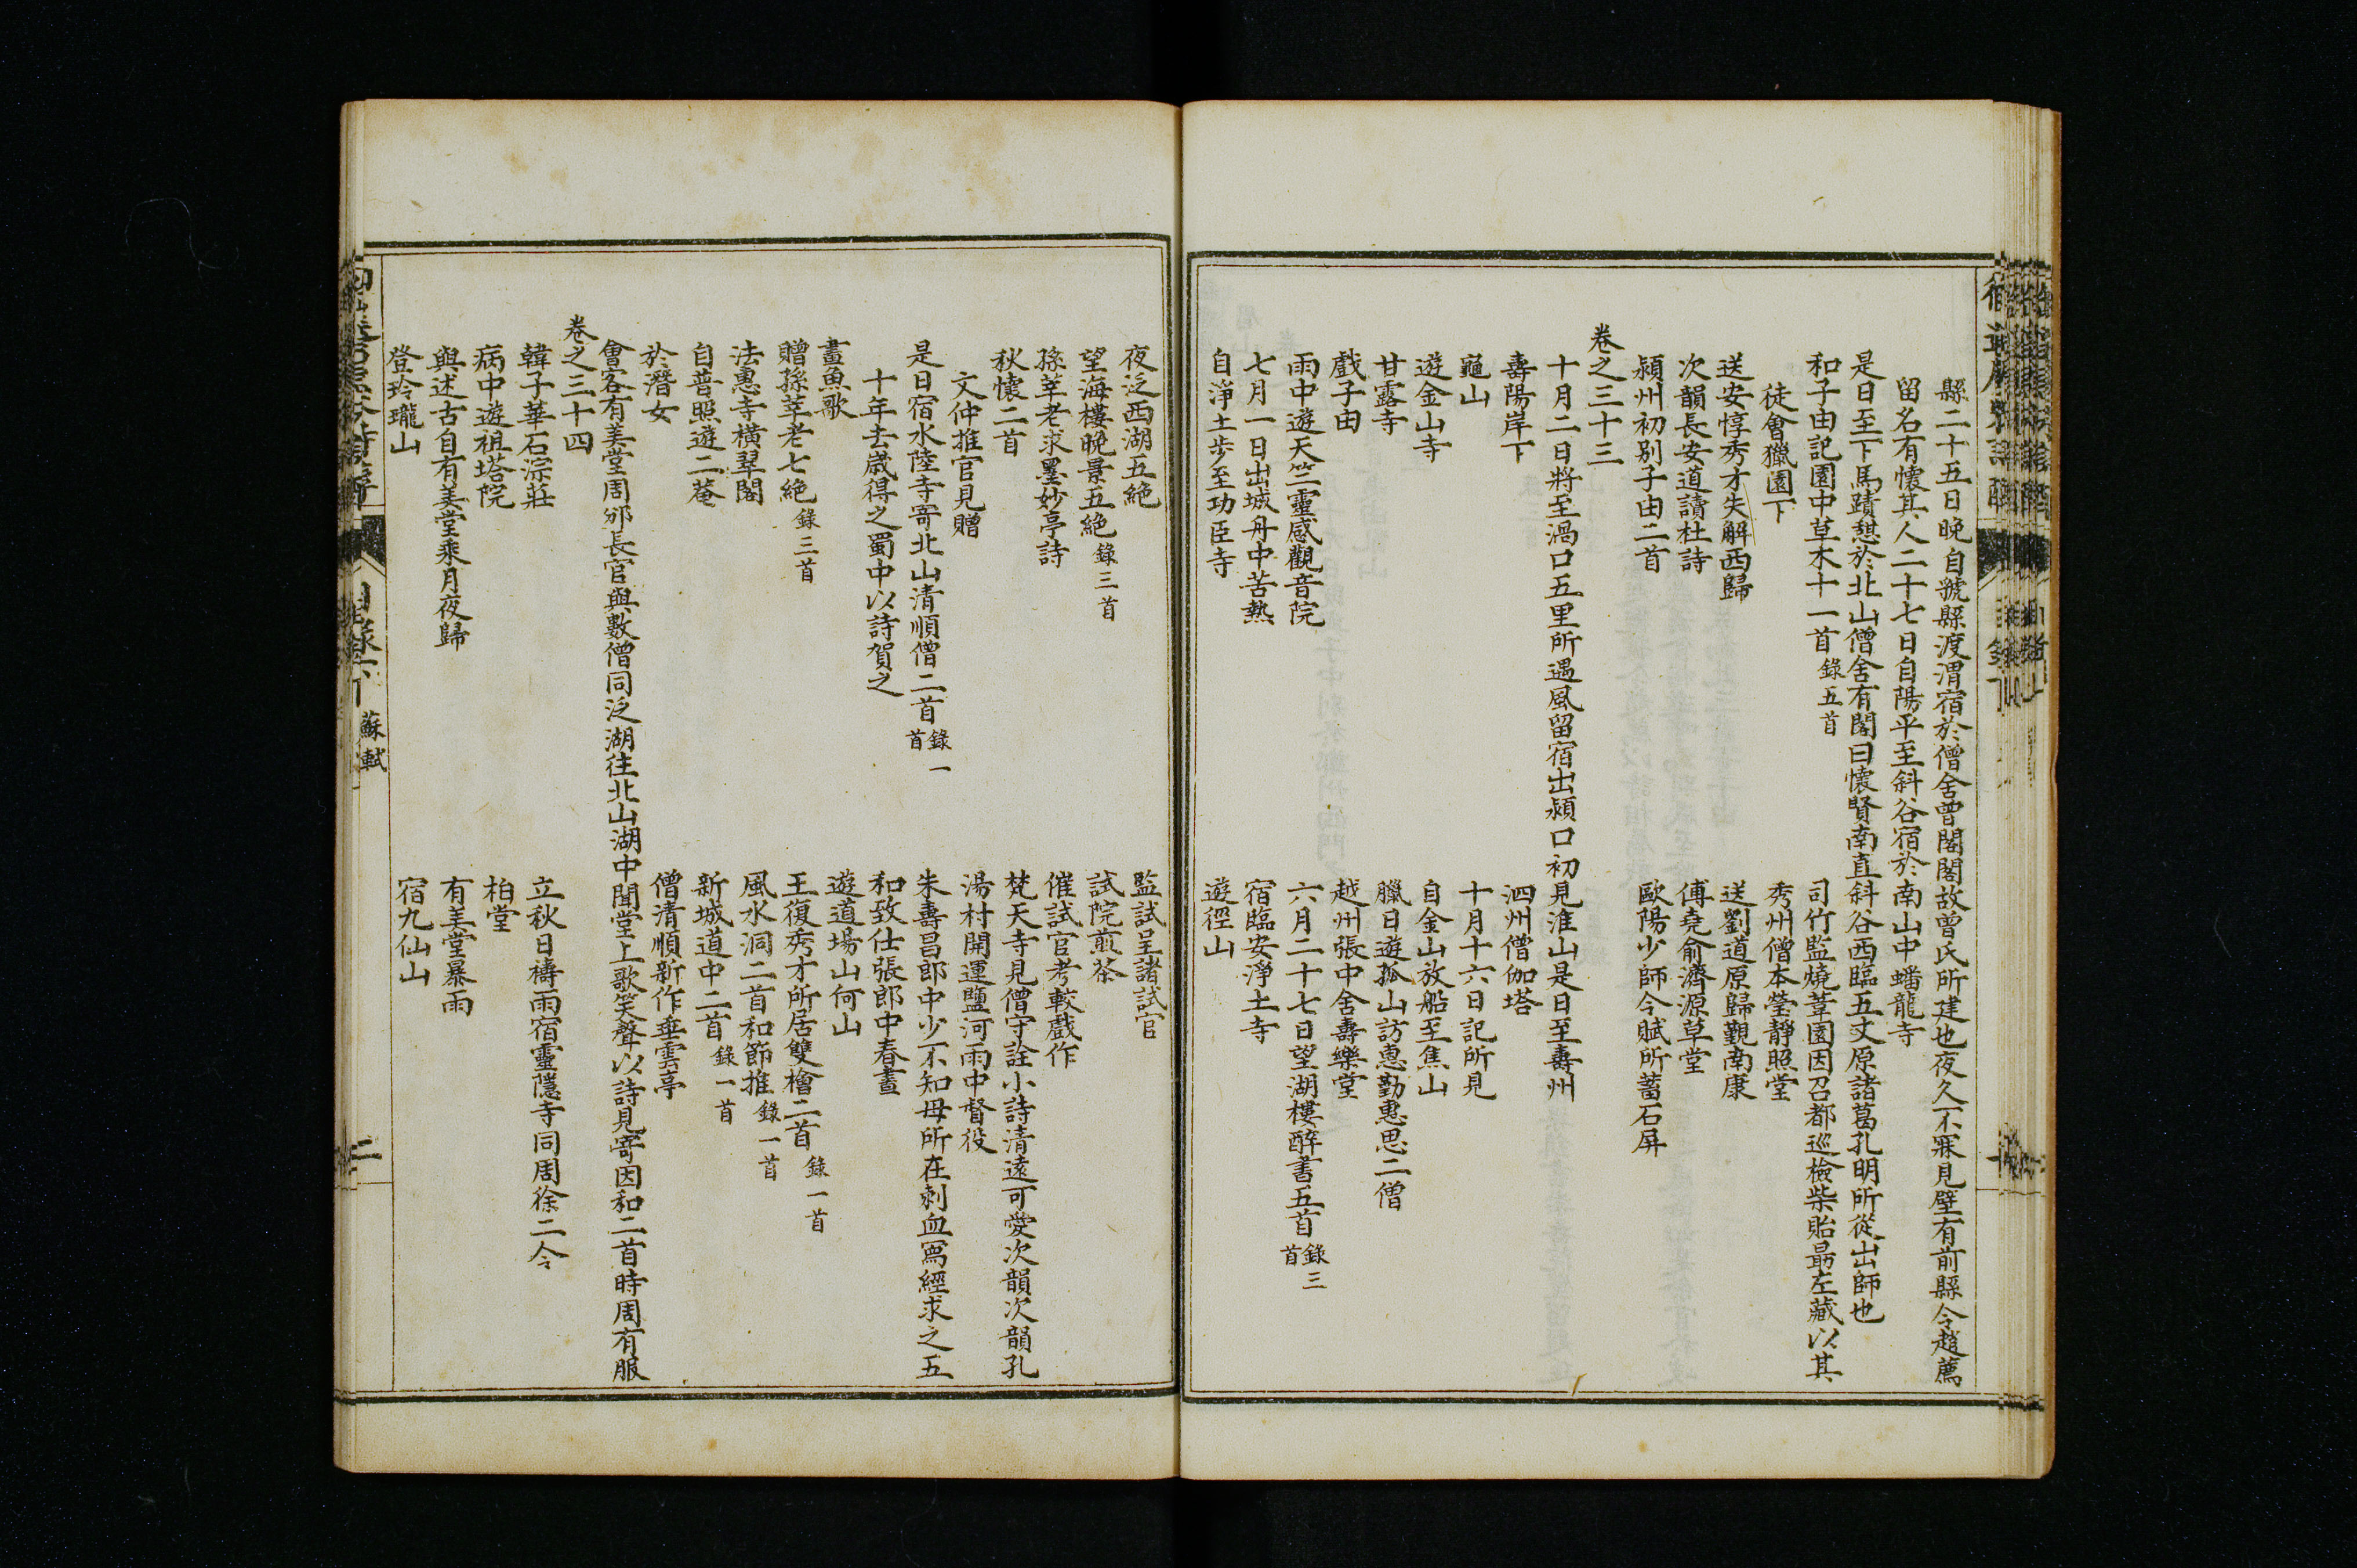 縣二十五日晚自虢縣渡渭宿於僧舍曾閣閣故曾氏所建也夜久不寐見壁有前縣令趙薦
留名有懷其人二十七日自陽平至斜谷宿於南山中蟠龍寺
是日至下馬蹟憩於北山僧舍有閣曰懷賢南直斜谷西臨五丈原諸葛孔明所從出師也
和子由記園中草木十一首 錄五首
司竹監燒葦園因召都巡檢柴貽最左藏以其
徒會獵園下
秀州僧本瑩靜照堂
送安惇秀才失解西歸
送劉道原歸覲南康
次韻長安道讀杜詩
傅堯俞濟源草堂
潁州初別子由二首
歐陽少師令賦所蓄石屏
卷之三十三
十月二日將至渦口五里所遇風留宿出潁口初見淮山是日至壽州
壽陽岸下
泗州僧伽塔
龜山
十月十六日記所見
遊金山寺
自金山放船至焦山
甘露寺
臘日遊孤山訪惠勤惠思二僧
戲子由
越州張中舍壽樂堂
雨中遊天竺靈感觀音院
六月二十七日望湖樓醉書五首 錄三首
七月一日出城舟中苦熱
宿臨安淨土寺
自淨土步至功臣寺
遊徑山
夜泛西湖五絕
監試呈諸試官
望海樓晚景五絕 錄三首
試院煎茶
孫莘老求墨妙亭詩
催試官考較戲作
秋懷二首
梵天寺見僧守詮小詩清遠可愛次韻次韻孔
文仲推官見贈
湯村開運鹽河雨中督役
是日宿水陸寺寄北山清順僧二首 錄一首
朱壽昌郎中少不知母所在刺血寫經求之五
十年去歲得之蜀中以詩賀之
和致仕張郎中春晝
畫魚歌
遊道場山何山
贈孫莘老七絕 錄三首
王復秀才所居雙檜二首 錄一首
法惠寺橫翠閣
風水洞二首和節推 錄一首
自普照遊二菴
新城道中二首 錄一首
於潛女
僧清順新作垂雲亭
會客有美堂周邠長官與數僧同泛湖往北山湖中聞堂上歌笑聲以詩見寄因和二首時周有服
卷之三十四
韓子華石淙莊
立秋日禱雨宿靈隱寺同周徐二令
病中遊祖塔院
柏堂
與述古自有美堂乘月夜歸
有美堂暴雨
登玲瓏山
宿九仙山
蘇軾
二